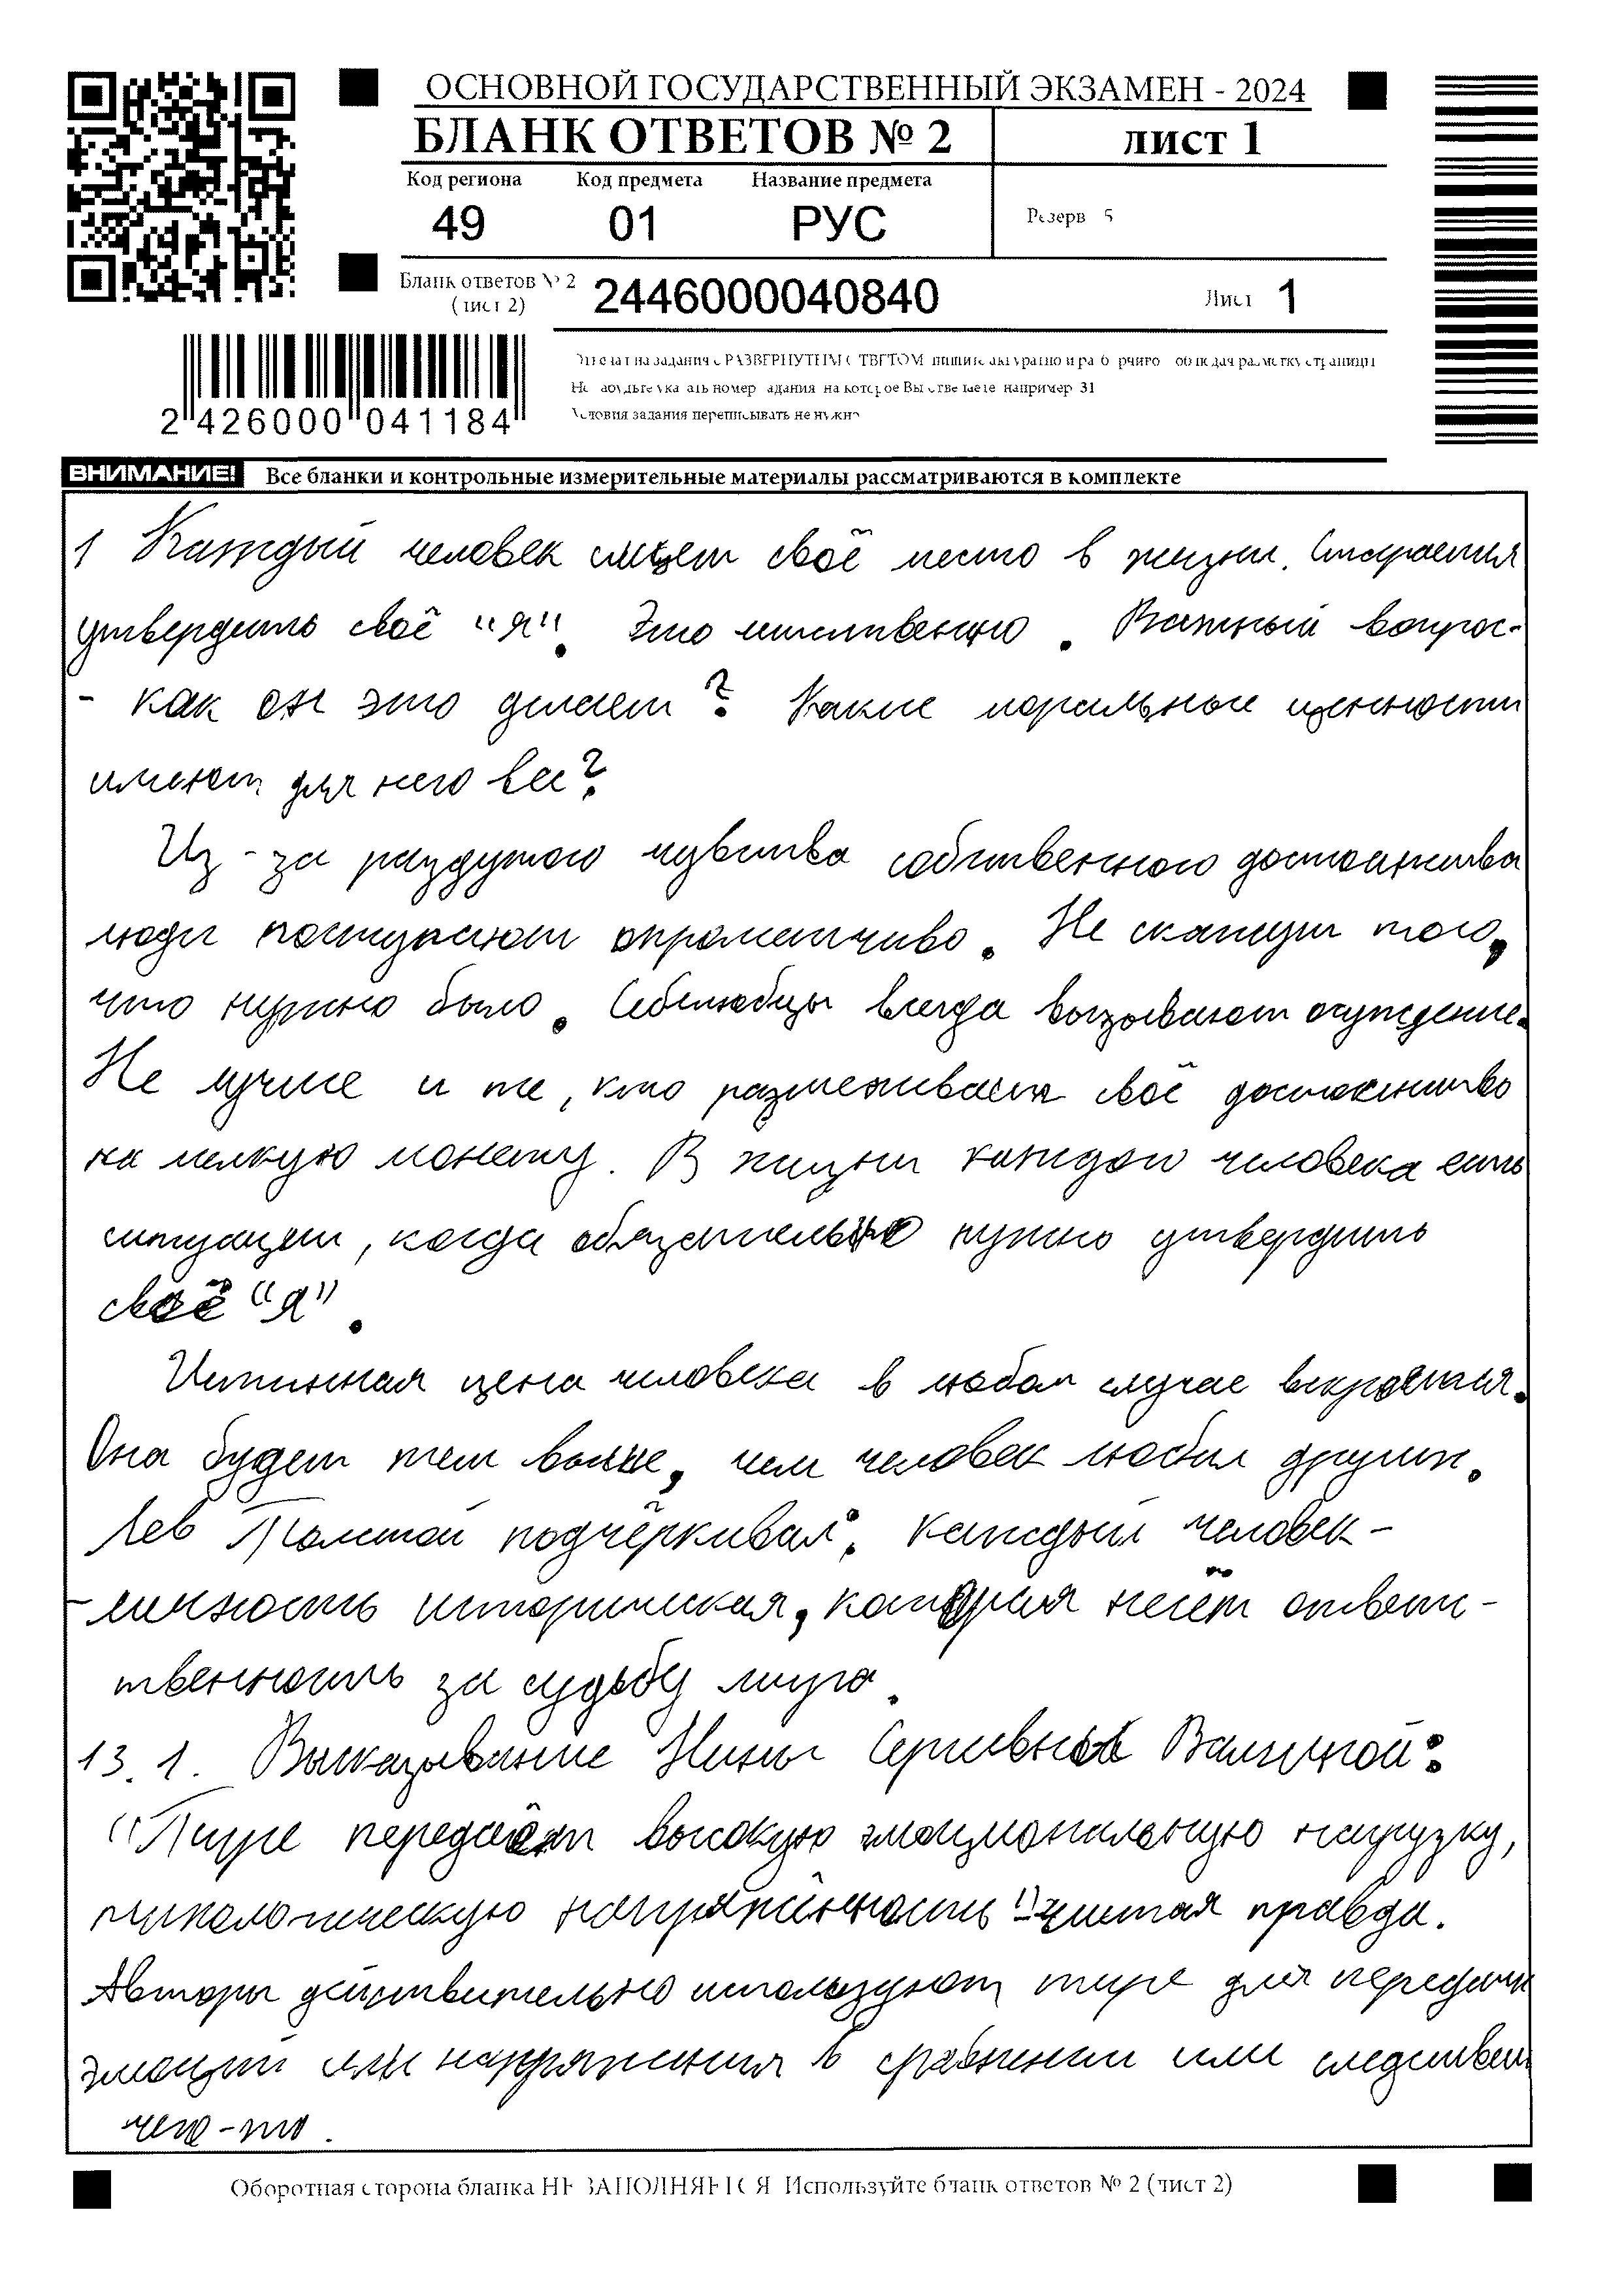 ОСНОВНОЙ ГОСУДАРСТВЕННЫЙ ЭКЗАМЕН - 2024
БЛАНК ОТВЕТОВ № 2
лист 1
Код региона Код предмета Название предмета
49 01 РУС
Резерв 5
Бланк ответов № 2
(лист 2)
2446000040840
Лист 1
2 426000 041184
ВНИМАНИЕ! Все бланки и контрольные измерительные материалы рассматриваются в комплекте
1 Каждый человек ищет своё место в жизни. Старается
утвердить своё "я". Это естественно. Важный вопрос-
- как он это делает? Какие моральные ценности
имеют для него вес?
Из-за раздутого чувства собственного достоинства
люди поступают опрометчиво. Не скажут того,
что нужно было. Себялюбцы всегда вызывают осуждение.
Не лучше и те, кто разменивает своё достоинство
на мелкую монету. В жизни каждого человека есть
ситуации, когда обязательно нужно утвердить
своё "Я".
Истинная цена человека в любом случае вскроется.
Она будет тем выше, чем человек любил других.
Лев Толстой подчёркивал: каждый человек-
-личность историческая, которая несёт ответс-
твенность за судьбу мира.
13.1. Высказывание Нины Сергеевны Валгиной:
"Тире передаёт высокую эмоциональную нагрузку,
психологическую напряжённость"-чистая правда.
Авторы действительно используют тире для передачи
эмоций или напряжения в сравнении или следствии
чего-то.
Оборотная сторона бланка НЕ ЗАПОЛНЯЕТСЯ Используйте бланк ответов № 2 (лист 2)